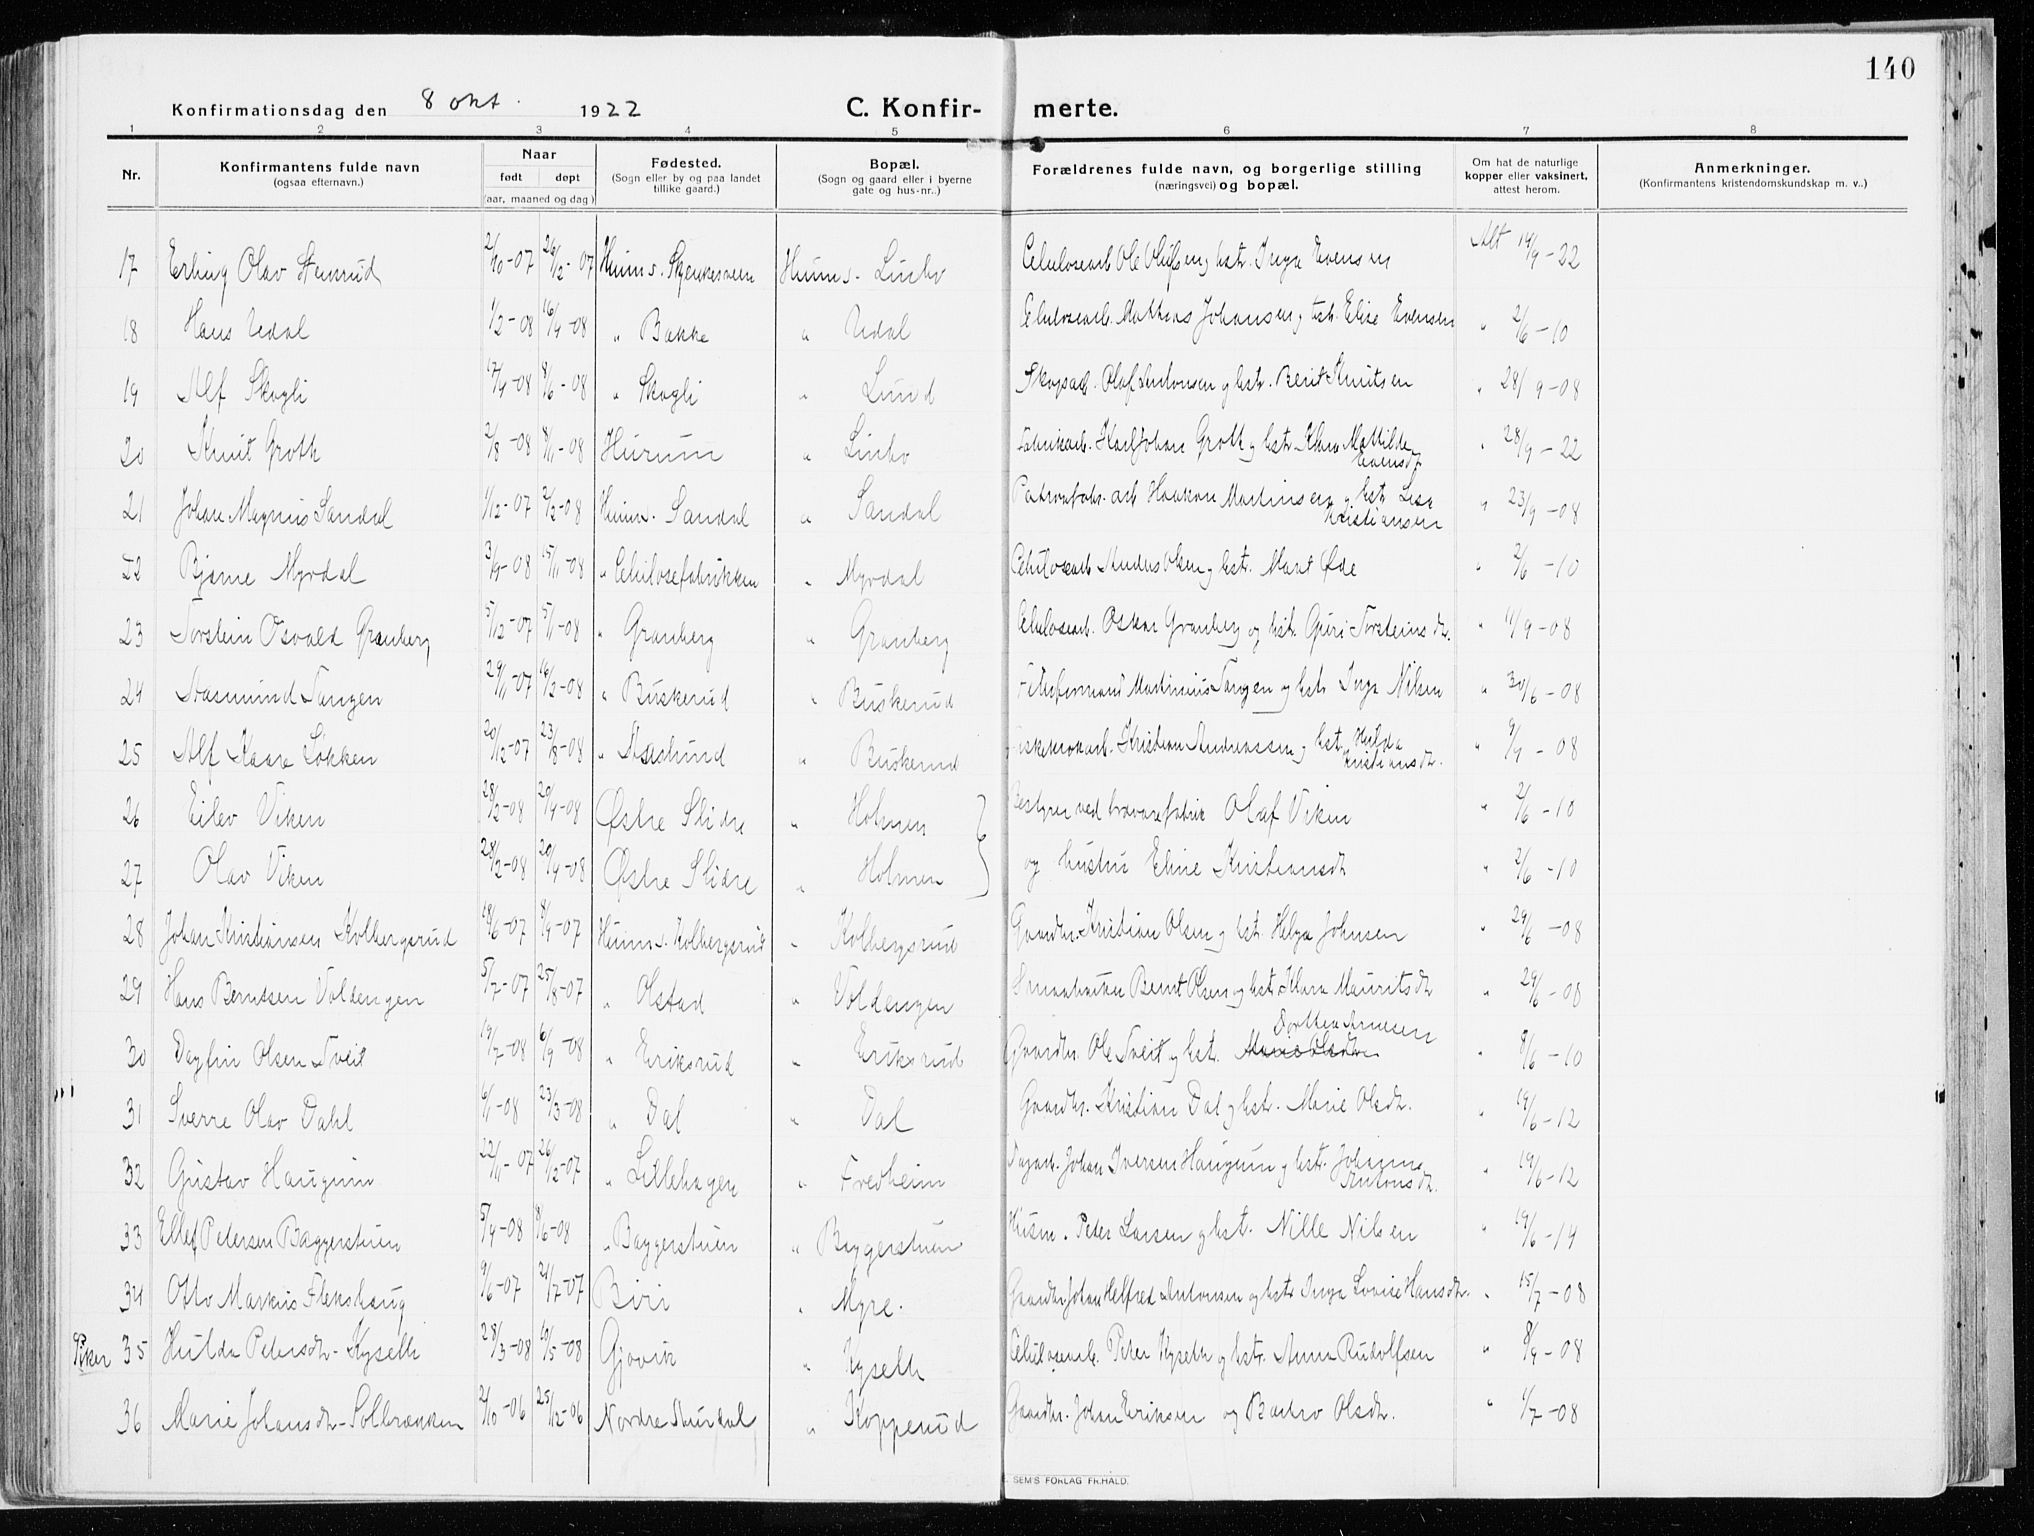 140
Konfirmationsdag den 8 okt. 1922 C. Konfir- merte.
1 2 3 4 5 6 7 8
Nr. Konfirmantens fulde navn (ogsaa efternavn.) Naar født døpt (aar, maaned og dag) Fødested. (Sogn eller by og paa landet tillike gaard.) Bopæl. (Sogn og gaard eller i byerne gate og hus-nr..) Forældrenes fulde navn, og borgerlige stilling (næringsvei) og bopæl. Om hat de naturlige kopper eller vaksinert, attest herom. Anmerkninger. (Konfirmantens kristendomskundskap m. v..)
17 Erling Olav Stenrud 2/10-07 26/12-07 Hunns. Hunns. Linbo Celulosearb. Ole Olufsen og hstr. Inga Evensen Att 14/9-22
18 Hans Udal 1/2-08 16/4-08 " Bakke " Udal Celulosearb. Mathias Johansen og hstr. Elise Evensen " 2/6-10
19 Alf Skogli 17/4-08 8/6-08 " Skogli " Lund Skogsarb. Olaf Antonsen og hstr. Berit Knutsen " 28/9-08
20 Knut Groth 2/8-08 8/11-08 Hurum " Linbo Fabrikarb. Karl Johan Grott og hstr. Klara Mathilde Evensdt. " 28/9-22
21 Johan Magnus Sandal 1/12-07 2/2-08 Hunns. Sandal " Sandal Patronfabr. arb Haakon Martinsen og hstr Lise Kristiansen " 23/9-08
22 Bjarne Myrdal 3/9-08 15/11-08 " Celulosefabrikken " Myrdal Celulosearb Anders Olsen og hstr. Marit Øde " 2/6-10
23 Torstein Osvald Granberg 5/12-07 5/1-08 " Granberg " Granberg Celulosearb. Oskar Granberg og hstr. Guri Torsteinsdt. " 11/9-08
24 Aasmund Tangen 29/11-07 16/2-08 " Buskerud " Buskerud Martinius Tangen og hstr Inga Nilsen " 30/6-08
25 Alf Kaare Løkken 20/12-07 23/8-08 " Aaslund " Buskerud Kristian Andreassen og hstr. Hulda Kristiansdt. " 9/9-08
26 Eilev Viken 28/2-08 20/4-08 Østre Slidre " Holmen Bestyrer ved trævarefabrik Olaf Viken " 2/6-10
27 Olav Viken 28/2-08 20/4-08 Østre Slidre " Holmen og hustru Eline Kristiansdt " 2/6-10
28 Johan Kristiansen Kolbergsrud 18/6-07 8/9-07 Hunns. Kolbergsrud " Kolbergsrud Gaardbr. Kristian Olsen og hstr. Helga Johnsen " 29/6-08
29 Hans Berntsen Voldengen 5/7-07 25/8-07 " Olstad " Voldengen Smaabruker Bernt Olsen og hstr. Klara Mauritsdt " 29/6-08
30 Dagfin Olsen Tveit 19/7-08 6/9-08 " Eriksrud " Eriksrud Gaardbr. Ole Tveit og hstr. Marie Olsdtr Dorthea Arnesen " 8/6-10
31 Sverre Olav Dahl 6/1-08 23/3-08 " Dal " Dal Gaardbr. Kristian Dal og hstr. Marie Olsdt. " 19/6-12
32 Gustav Haugum 22/11-07 26/12-07 " Lillehagen " Fredheim Dagarb. Johan Iversen Haugum og hstr. Johanne Antonsdt. " 19/6-12
33 Ellef Petersen Baggerstuen 5/4-08 8/6-08 " Baggerstuen " Baggerstuen Husm. Peder Larsen og hstr. Nille Nilsen " 19/6-14
34 Otto Markus Flekshaug 9/6-07 21/7-07 Biri " Myre. Gaardbr. Johan Helfred Antonsen og hstr Inga Lovise Hansdt. " 15/7-08
Piker 35 Hulda Petersdt- Kyseth 28/3-08 10/5-08 Gjøvik " Kyseth Celulosearb. Peter Kyseth og hstr. Anna Rudolfsen " 8/9-08
36 Marie Johansdt-Solbrækken 2/10-06 25/12-06 Nordre Aurdal " Kopperud Gaardbr. Johan Eriksen og Olsdt. " 1/7-08
SEM'S FORLAG FR.HALD.